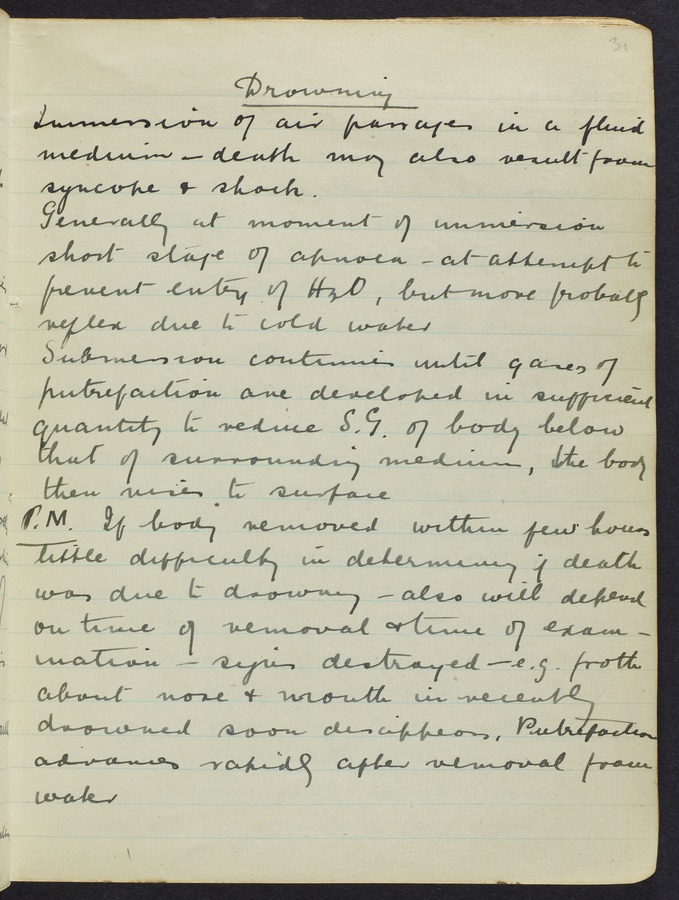 31
Drowning
Immersion of air passages in a fluid
medium – death may also result from
syncope & shock.
Generally at moment of immersion
short stage of apnoea – at attempt to
prevent entry of H2O, but more probably
reflex due to cold water
Submersion continues until gases of
putrefaction are developed in sufficient
quantity to reduce S.G. of body below
that of surrounding medium, the body
then rises to surface
P.M. If body removed within few hours
little difficulty in determining if death
was due to drowning – also will depend
on time of removal & time of exam-
ination – signs destroyed – e.g. froth
about nose & mouth in recently
drowned soon disappears. Putrefaction
advances rapidly after removal from
water